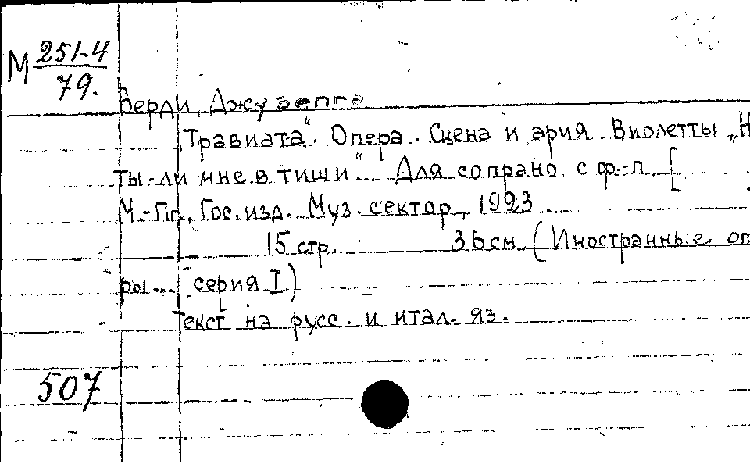 М 251-4
79.
Верди, Джузеппе
„Травиата". Опера. Сцена и ария Виолетты „Н
ты-ли мне в тиши". Для сопрано с ф.-п. [
М.-Пг., Гос. изд. Муз. сектор, 1923
15 стр. 35 см. (Иностранные оп
ры... серия I)
Текст на русс. и итал. яз.
507